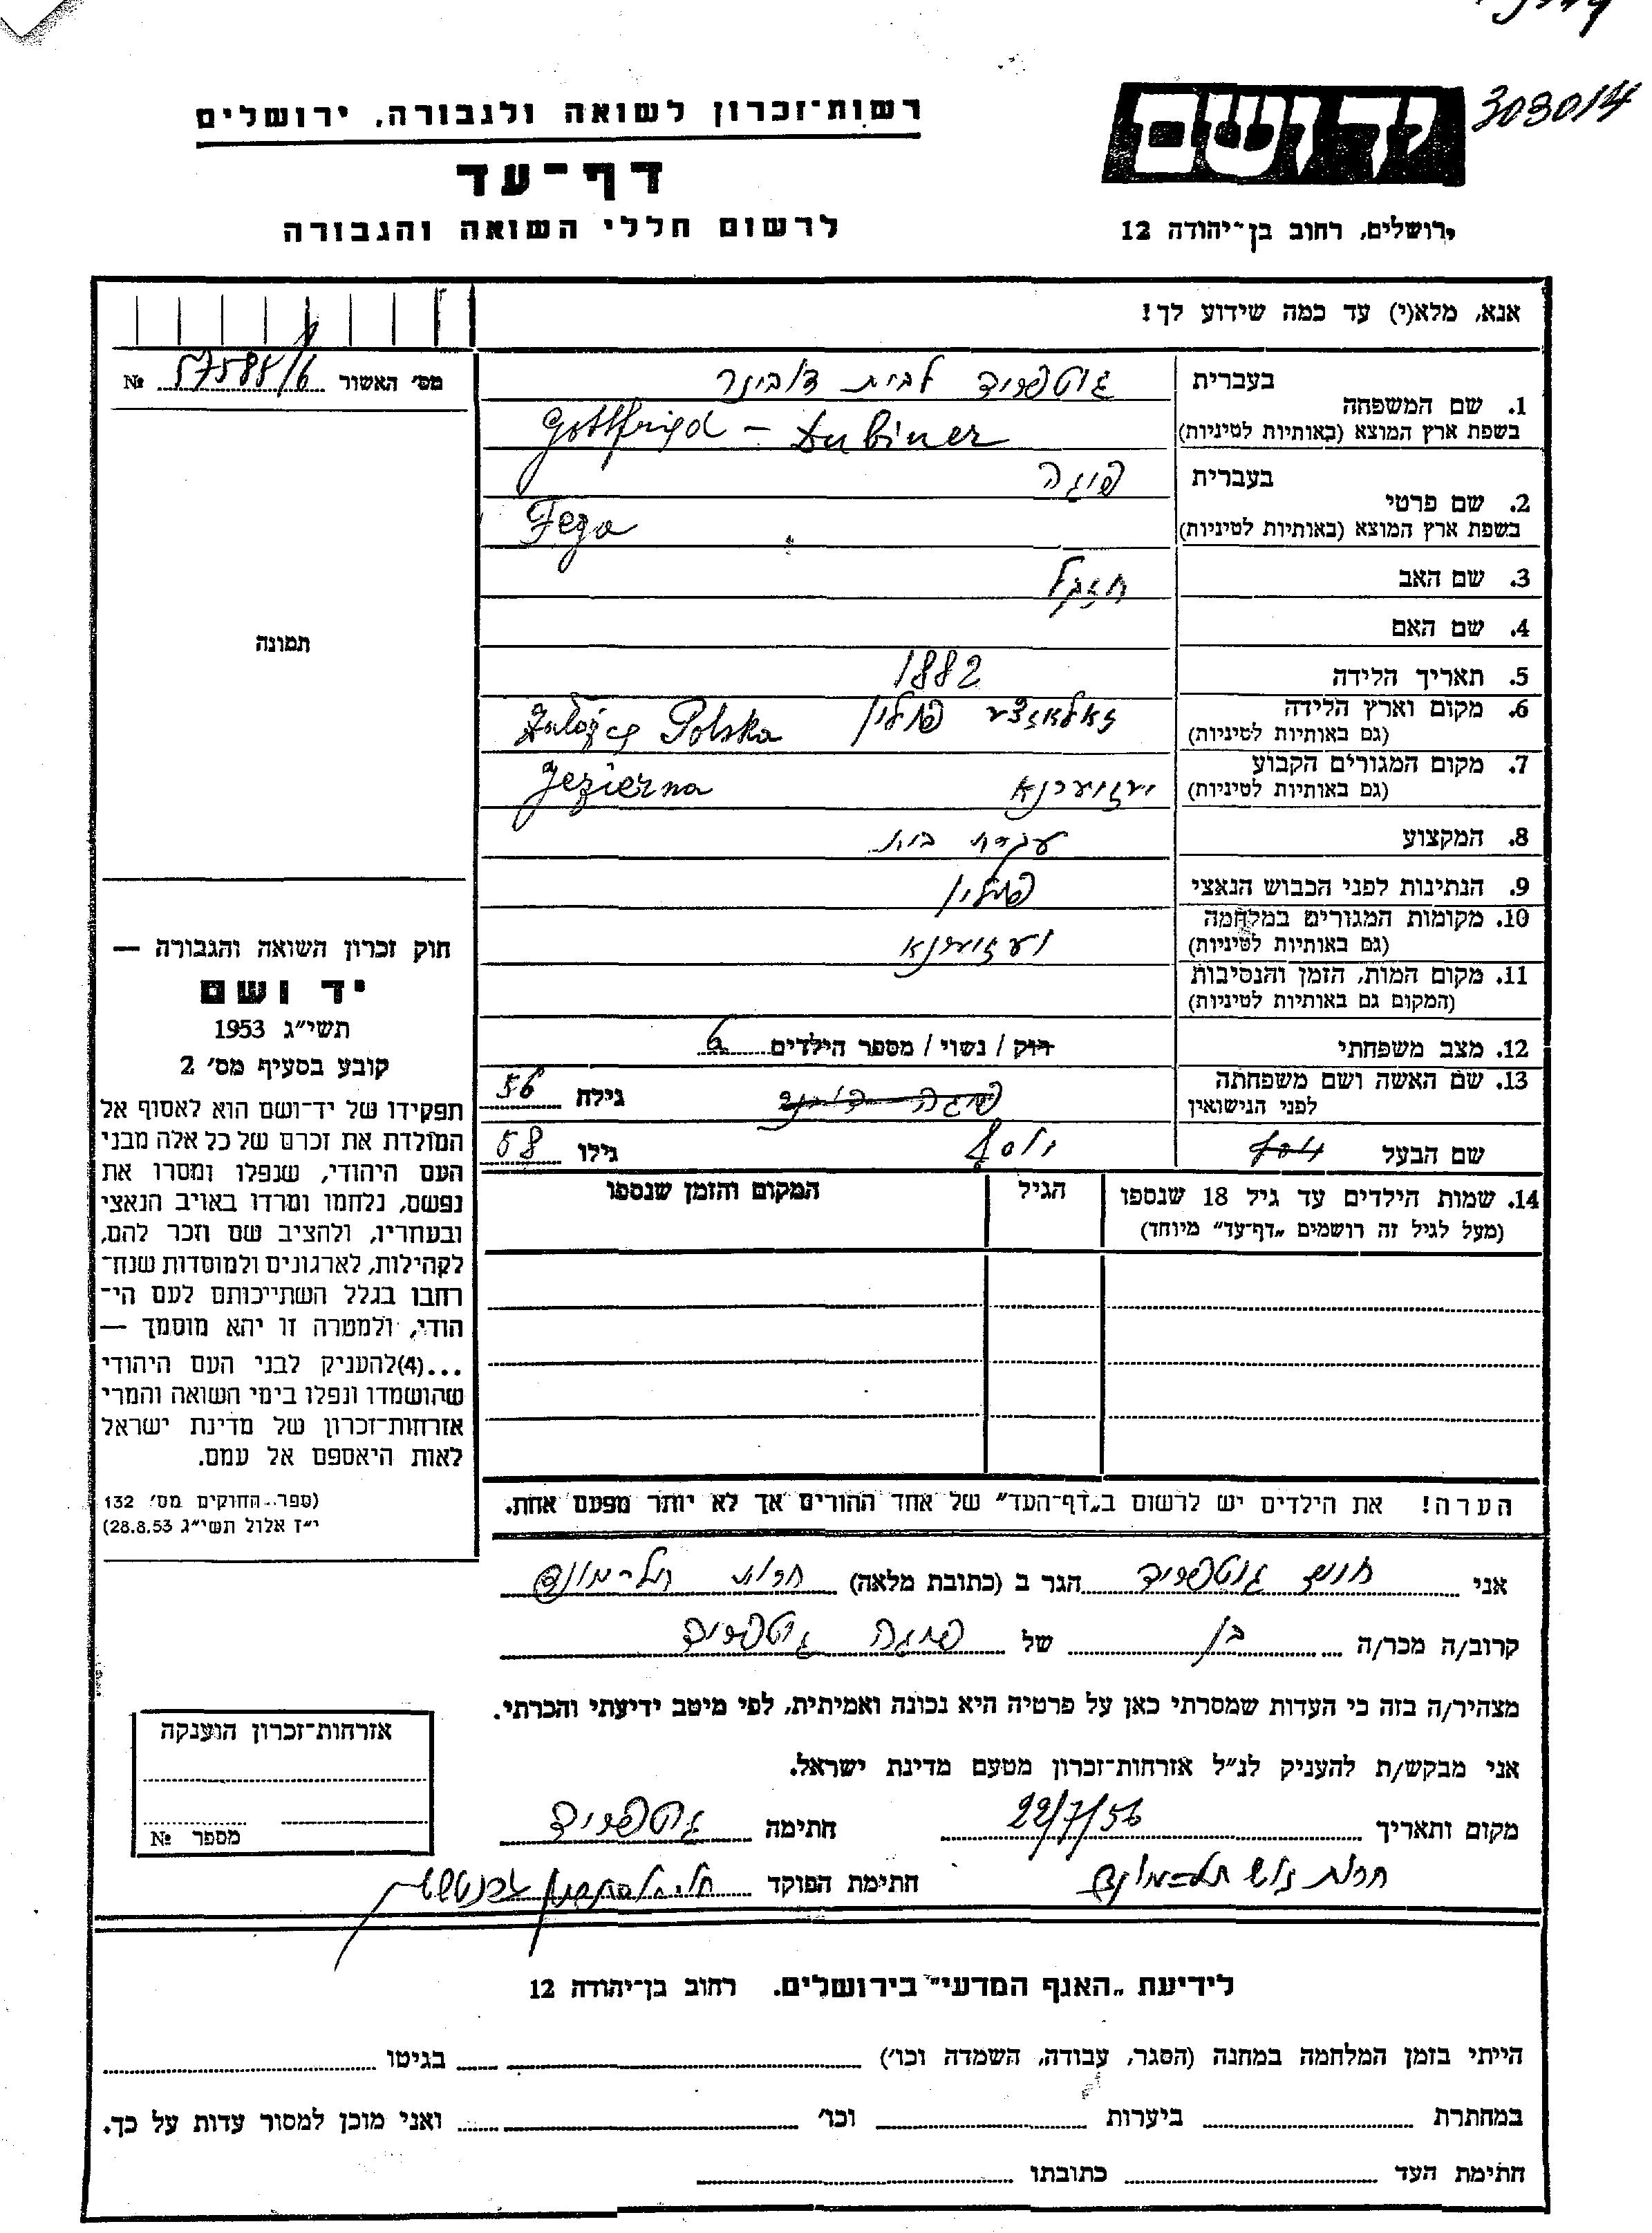 303014
רשות־זכרון לשואה ולגבורה, ירושלים
ידושם
דף־עד
ירושלים, רחוב בן־יהודה 12
לרשום חללי השואה והגבורה
אנא, מלא(י) עד כמה שידוע לך!
מס׳ האשור № 57588/6
1. שם המשפחה
בעברית גוטפריד לבית דובינר
בשפת ארץ המוצא (באותיות לטיניות) Gottfried – Dubiner
2. שם פרטי
בעברית פייגה
בשפת ארץ המוצא (באותיות לטיניות) Fega
3. שם האב
4. שם האם
תמונה
5. תאריך הלידה 1882
6. מקום וארץ הלידה פולין Załoźce Polska
(גם באותיות לטיניות)
7. מקום המגורים הקבוע Jezierna
(גם באותיות לטיניות)
8. המקצוע עקרת בית
9. הנתינות לפני הכבוש הנאצי פולין
10. מקומות המגורים במלחמה
(גם באותיות לטיניות)
11. מקום המות, הזמן והנסיבות
(המקום גם באותיות לטיניות)
12. מצב משפחתי רוק / נשוי / מספר הילדים 6
13. שם האשה ושם משפחתה
לפני הנישואין גילה 56
שם הבעל יוסף גילו 58
14. שמות הילדים עד גיל 18 שנספו הגיל המקום והזמן שנספו
(מעל לגיל זה רושמים „דף־עד" מיוחד)
הערה! את הילדים יש לרשום ב„דף־העד" של אחד ההורים אך לא יותר מפעם אחת.
חוק זכרון השואה והגבורה —
יד ושם
תשי״ג 1953
קובע בסעיף מס׳ 2
תפקידו של יד־ושם הוא לאסוף אל
המולדת את זכרם של כל אלה מבני
העם היהודי, שנפלו ומסרו את
נפשם, נלחמו ומרדו באויב הנאצי
ובעוזריו, ולהציב שם וזכר להם,
לקהילות, לארגונים ולמוסדות שנח־
רחבו בגלל השתייכותם לעם הי־
הודי, ולמטרה זו יהא מוסמך —
...(4)להעניק לבני העם היהודי
שהושמדו ונפלו בימי השואה והמרי
אזרחות־זכרון של מדינת ישראל
לאות היאספם אל עמם.
(ספר־החוקים מס׳ 132
י״ז אלול תשי״ג 28.8.53)
אני גוטפריד הגר ב (כתובת מלאה)
קרוב/ה מכר/ה בן של פייגה גוטפריד
מצהיר/ה בזה כי העדות שמסרתי כאן על פרטיה היא נכונה ואמיתית, לפי מיטב ידיעתי והכרתי.
אני מבקש/ת להעניק לנ״ל אזרחות־זכרון מטעם מדינת ישראל.
מקום ותאריך 22/7/56 חתימה גוטפריד
חתימת הפוקד
אזרחות־זכרון הוענקה
מספר №
לידיעת „האגף המדעי" בירושלים. רחוב בן־יהודה 12
הייתי בזמן המלחמה במחנה (הסגר, עבודה, השמדה וכו׳) בגיטו
במחתרת ביערות וכו׳ ואני מוכן למסור עדות על כך.
חתימת העד כתובתו